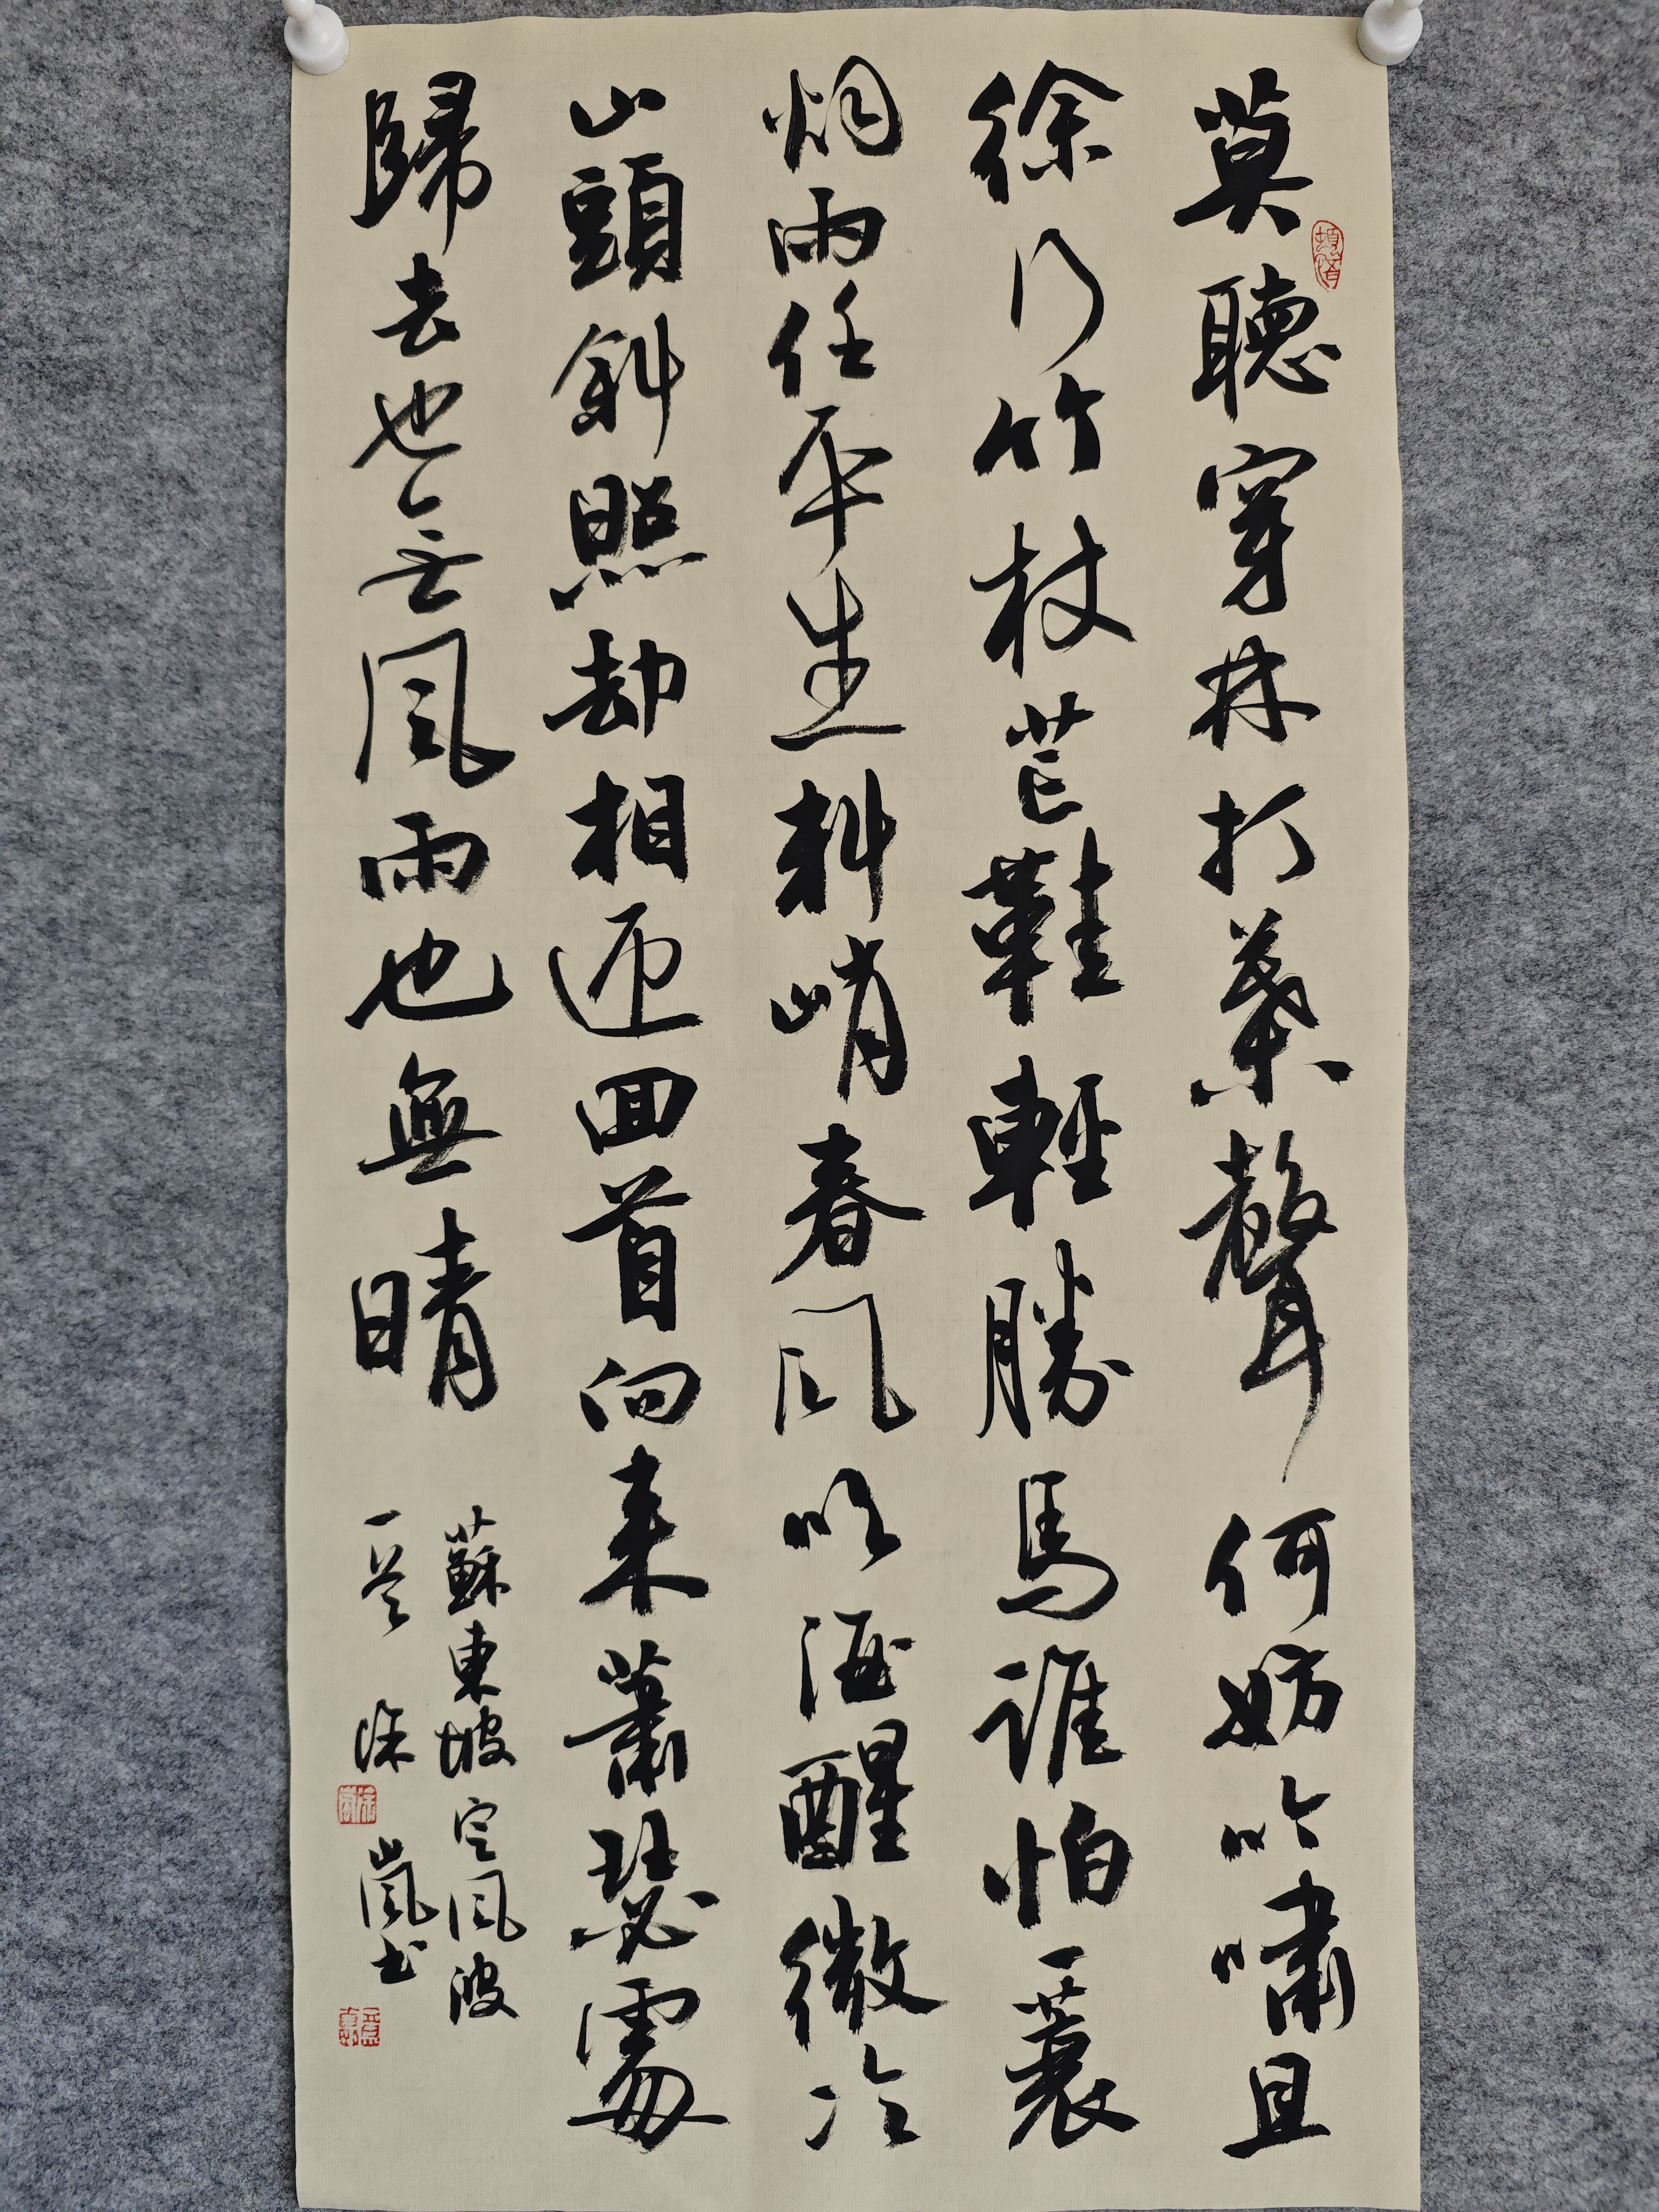 莫聽穿林打葉聲何妨吟嘯且
徐行竹杖芒鞋輕勝馬誰怕一蓑
烟雨任平生料峭春風吹酒醒微冷
山頭斜照却相迎回首向来蕭瑟處
歸去也無風雨也無晴
蘇東坡定風波
一首 徐嵐書